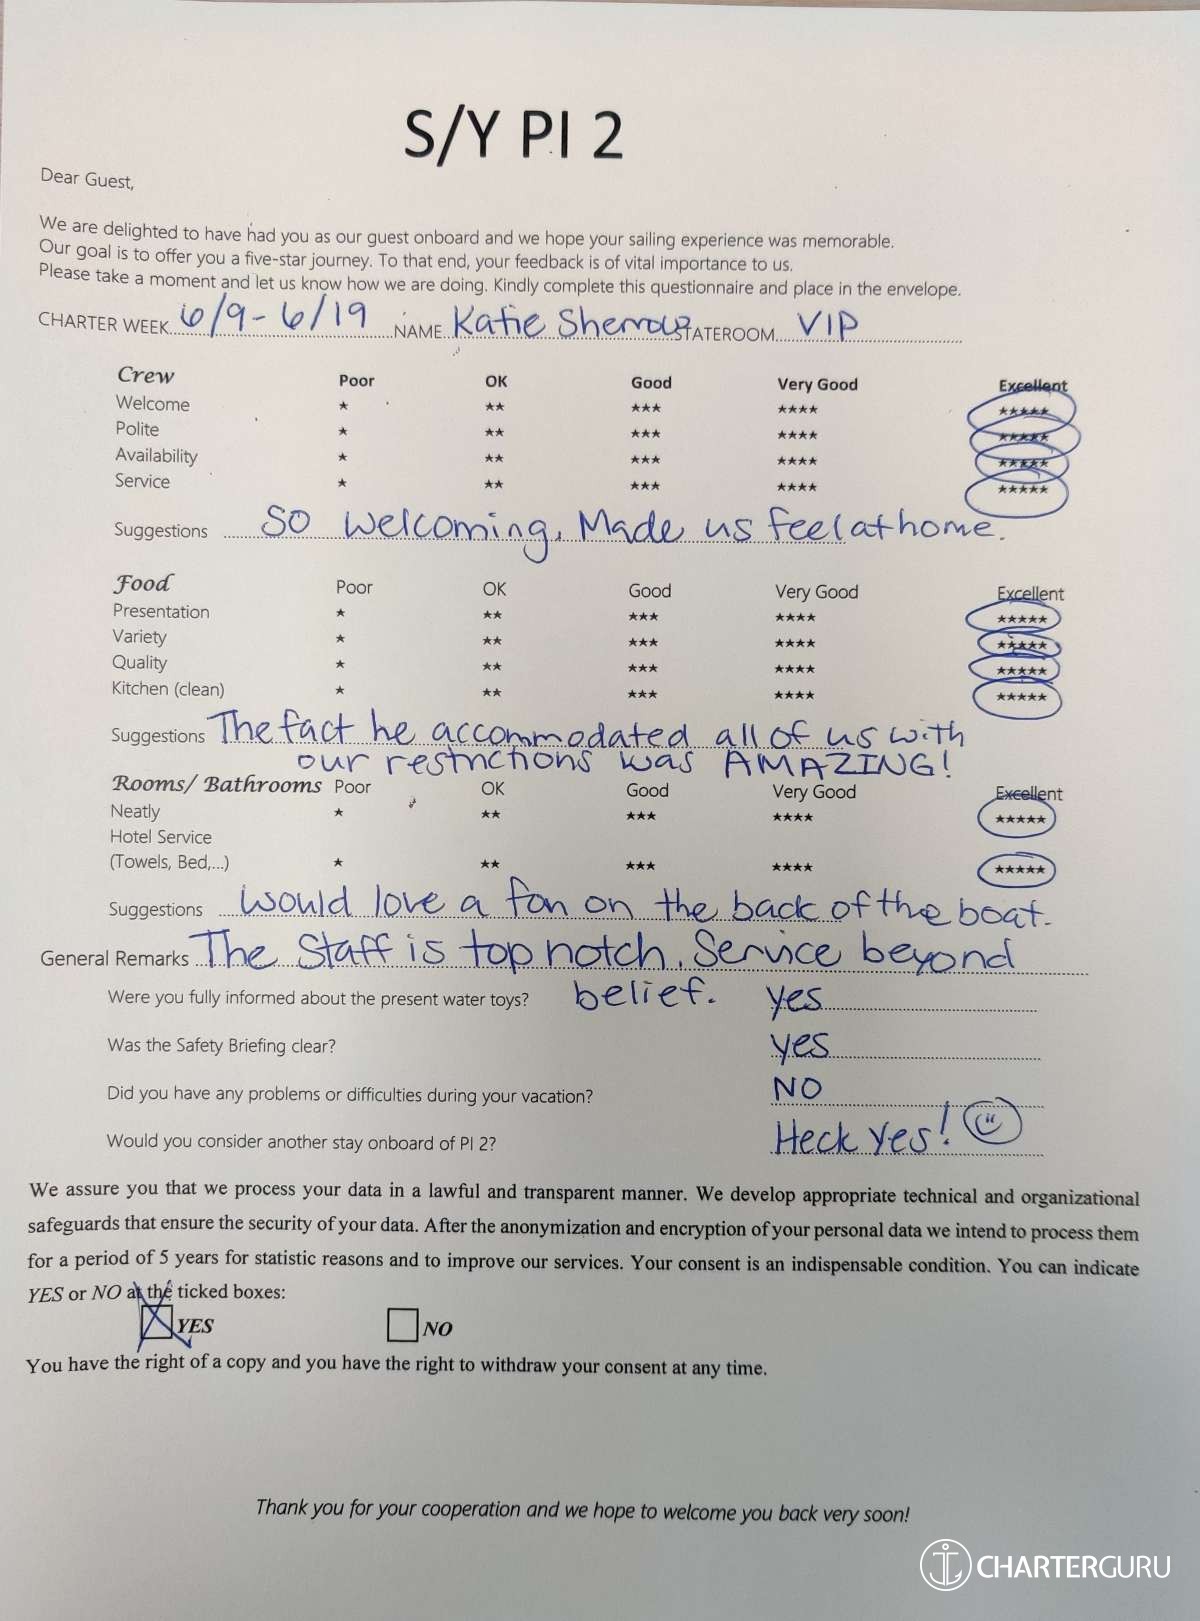 S/Y PI 2
Dear Guest,
We are delighted to have had you as our guest onboard and we hope your sailing experience was memorable.
Our goal is to offer you a five-star journey. To that end, your feedback is of vital importance to us.
Please take a moment and let us know how we are doing. Kindly complete this questionnaire and place in the envelope.
CHARTER WEEK 6/9 - 6/19 NAME Katie STATEROOM VIP
Crew Poor OK Good Very Good Excellent
Welcome ★ ★★ ★★★ ★★★★ ★★★★★
Polite ★ ★★ ★★★ ★★★★ ★★★★★
Availability ★ ★★ ★★★ ★★★★ ★★★★★
Service ★ ★★ ★★★ ★★★★ ★★★★★
Suggestions So welcoming, Made us feel at home.
Food Poor OK Good Very Good Excellent
Presentation ★ ★★ ★★★ ★★★★ ★★★★★
Variety ★ ★★ ★★★ ★★★★ ★★★★★
Quality ★ ★★ ★★★ ★★★★ ★★★★★
Kitchen (clean) ★ ★★ ★★★ ★★★★ ★★★★★
Suggestions The fact he accommodated all of us with
our restrictions was AMAZING!
Rooms/ Bathrooms Poor OK Good Very Good Excellent
Neatly ★ ★★ ★★★ ★★★★ ★★★★★
Hotel Service
(Towels, Bed,...) ★ ★★ ★★★ ★★★★ ★★★★★
Suggestions Would love a fan on the back of the boat.
General Remarks The Staff is top notch. Service beyond
belief.
Were you fully informed about the present water toys? yes
Was the Safety Briefing clear? yes
Did you have any problems or difficulties during your vacation? NO
Would you consider another stay onboard of PI 2? Heck Yes!
We assure you that we process your data in a lawful and transparent manner. We develop appropriate technical and organizational
safeguards that ensure the security of your data. After the anonymization and encryption of your personal data we intend to process them
for a period of 5 years for statistic reasons and to improve our services. Your consent is an indispensable condition. You can indicate
YES or NO at the ticked boxes:
YES NO
You have the right of a copy and you have the right to withdraw your consent at any time.
Thank you for your cooperation and we hope to welcome you back very soon!
CHARTERGURU